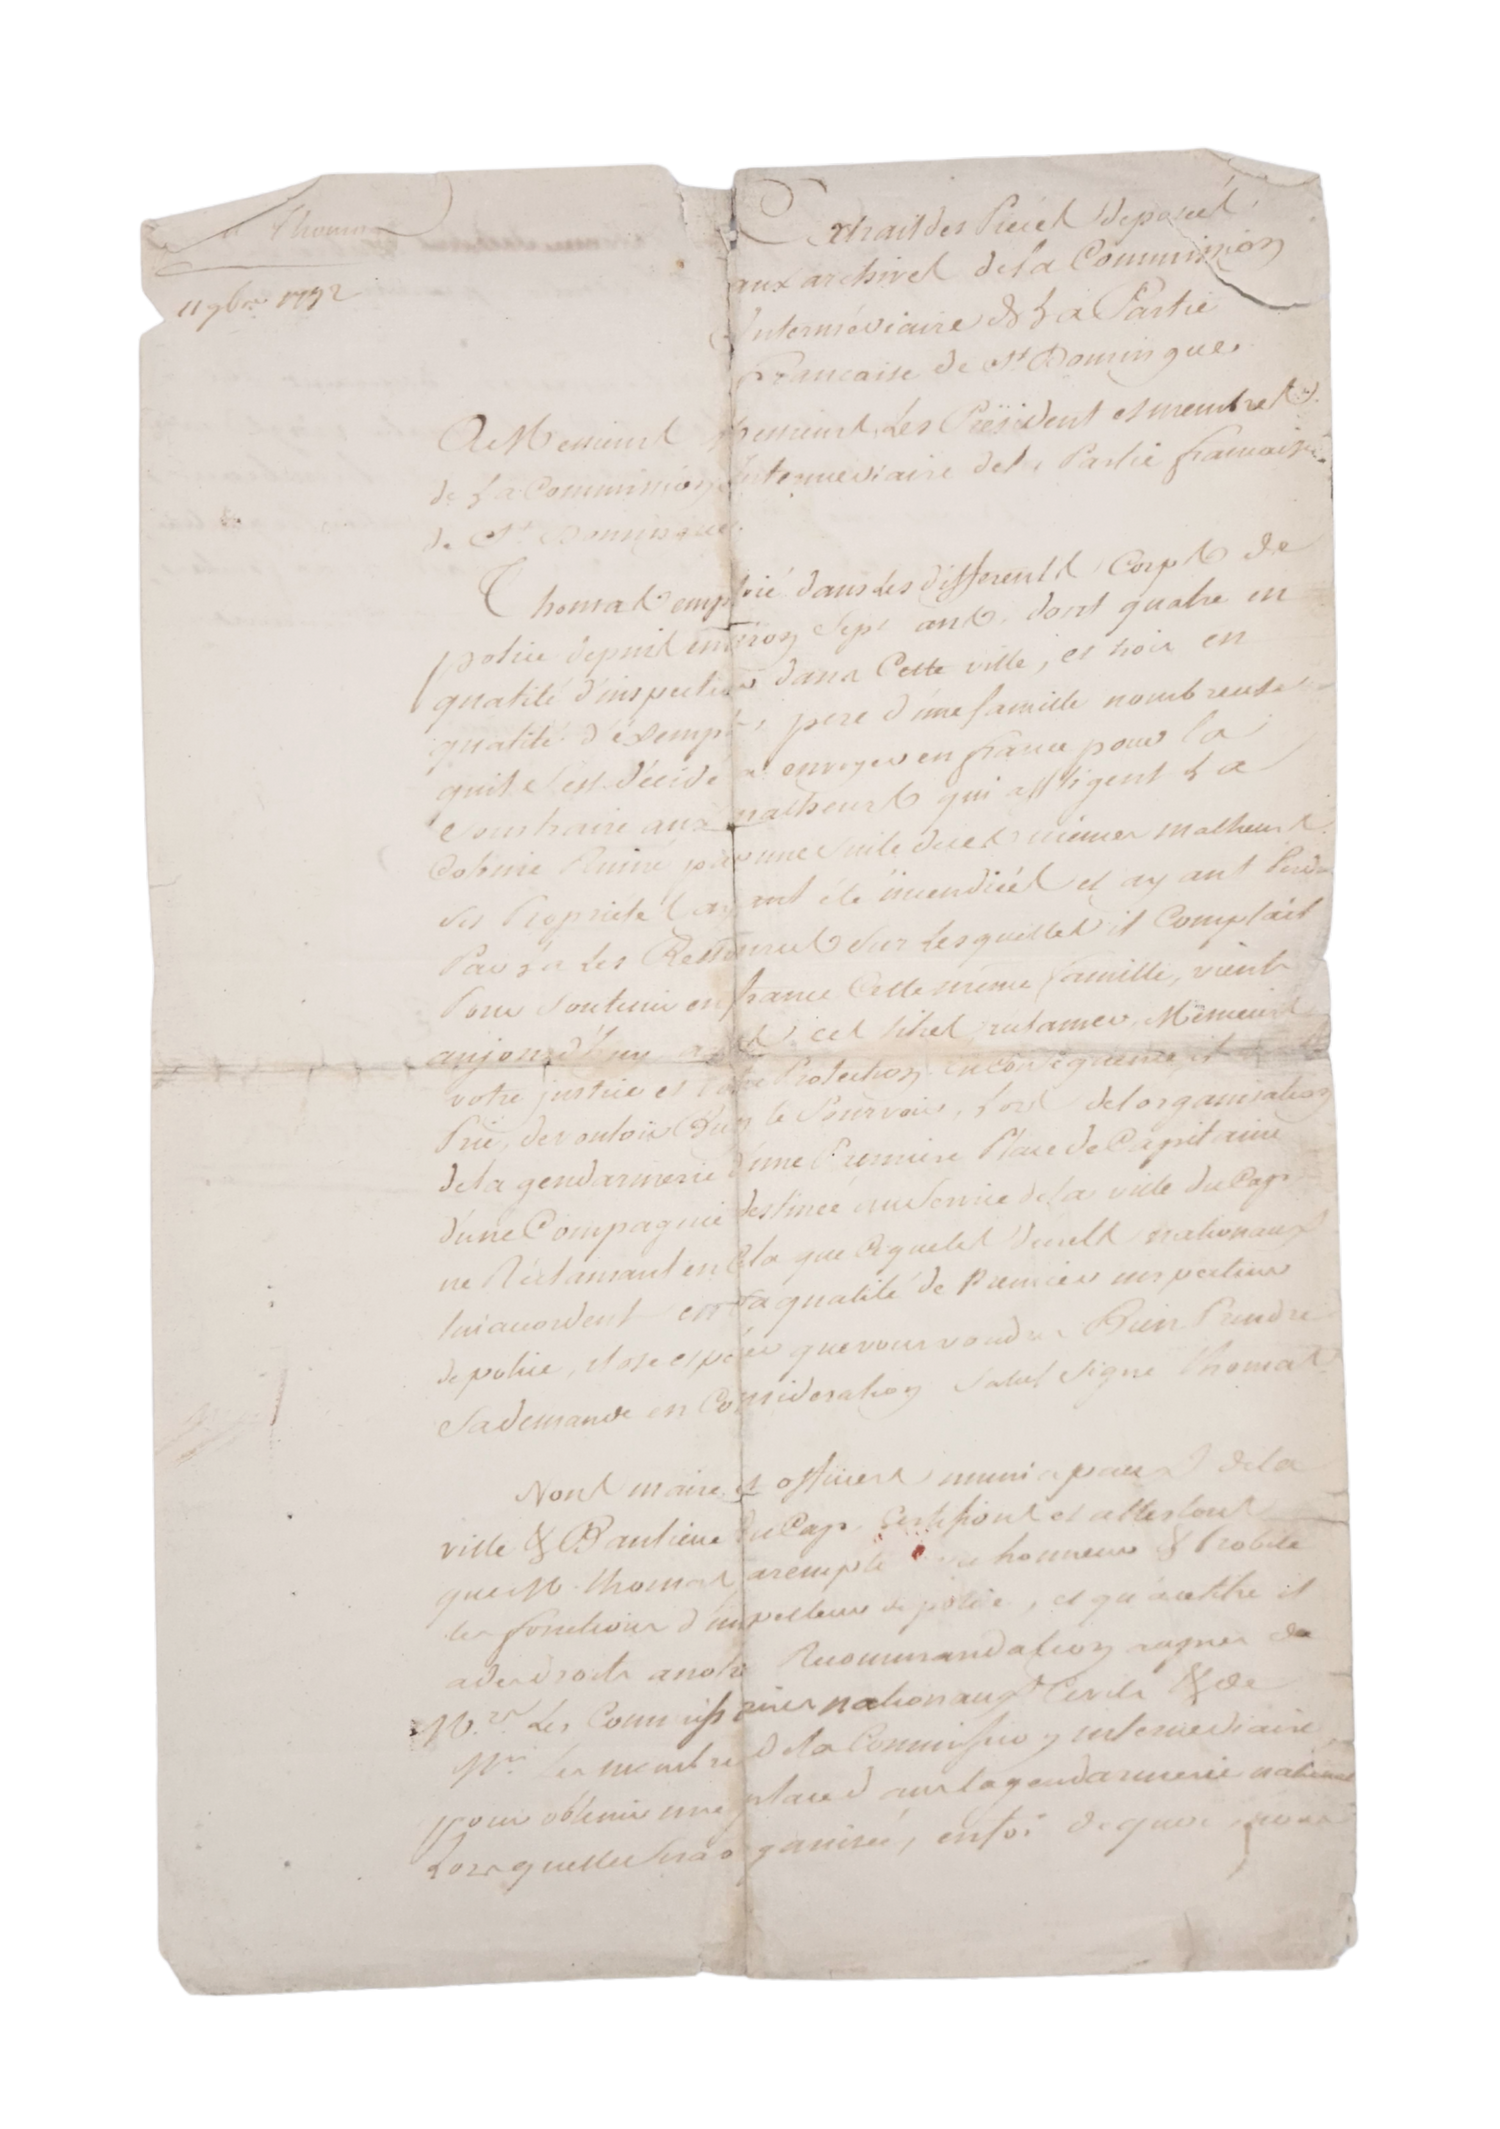 Thomas
11 9bre 1792
Extrait des Pieces deposées
aux archives de la Commission
Intermédiaire de La Partie
francaise de St Domingue
A Messieurs Messieurs Les Président et membres
de La Commission Intermediaire de la Partie francaise
de St Domingue.
Thomas emploié dans Les differents Corps de
police depuis environ Sept ans, dont quatre en
qualité d'inspecteur dans Cette ville, et trois en
qualité d'éxempt, pere d'une famille nombreuse
quil s'est décidé a envoyer en france pour la
Soustraire aux malheurs qui affligent La
Colonie Ruiné par une Suite de ces mêmes malheurs
Ses Propriétés ayant été incendiées et ayant Perdu
Par La Les Ressources Sur Lesquelles il Comptait
Pour Soutenir en france Cette même famille, vient
aujourd'huy a ces titres reclamer, Messieurs
votre justice et votre Protection en consequence il
Prie, de vouloir Bien le Pourvoir, Lors de lorganisation
de la gendarmerie d'une Premiere Place de Capitaine
d'une Compagnie destinée au Service de la ville du Cap
ne Réclamant en Cela que Ce que les decrets nationaux
lui accordent en Sa qualité de Premier inspecteur
de police, il ose espérer que vous voudrez Bien Prendre
Sa demande en Consideration Salut Signé Thomas
Nous maire et officiers municipaux de la
ville & Banlieue du Cap Certifions et attestons
que M. Thomas a rempli avec honneur & Probité
les fonctions d'inspecteur de police, et qu'a ce titre il
a des droits a notre Recommandation aupres de
Mrs Les Commissaires nationaux Civils & de
Mrs Les membres de la Commission intermediaire
pour obtenir une place dans la gendarmerie nationale
Lors quelle Sera organisée, en foi de quoi nous